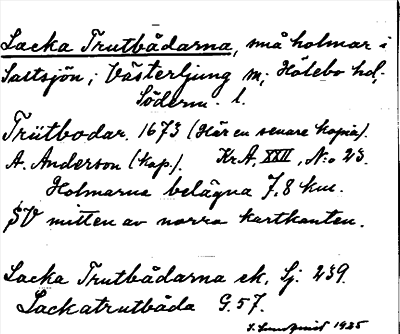 Lacka Trutbådarna, små holmar i
Saltsjön, i Västerljung sn, Hölebo hd,
Söderm. l.
Trütbodar 1673 (Här en senare kopia).
A. Anderson (kop.). KrA, XXII, N:o 23.
Holmarna belägna 7,8 km.
SV mitten av norra kartkanten.
Lacka Trutbådarna ek. Sj. 239.
Lackatrutbåda G. 57.
1925